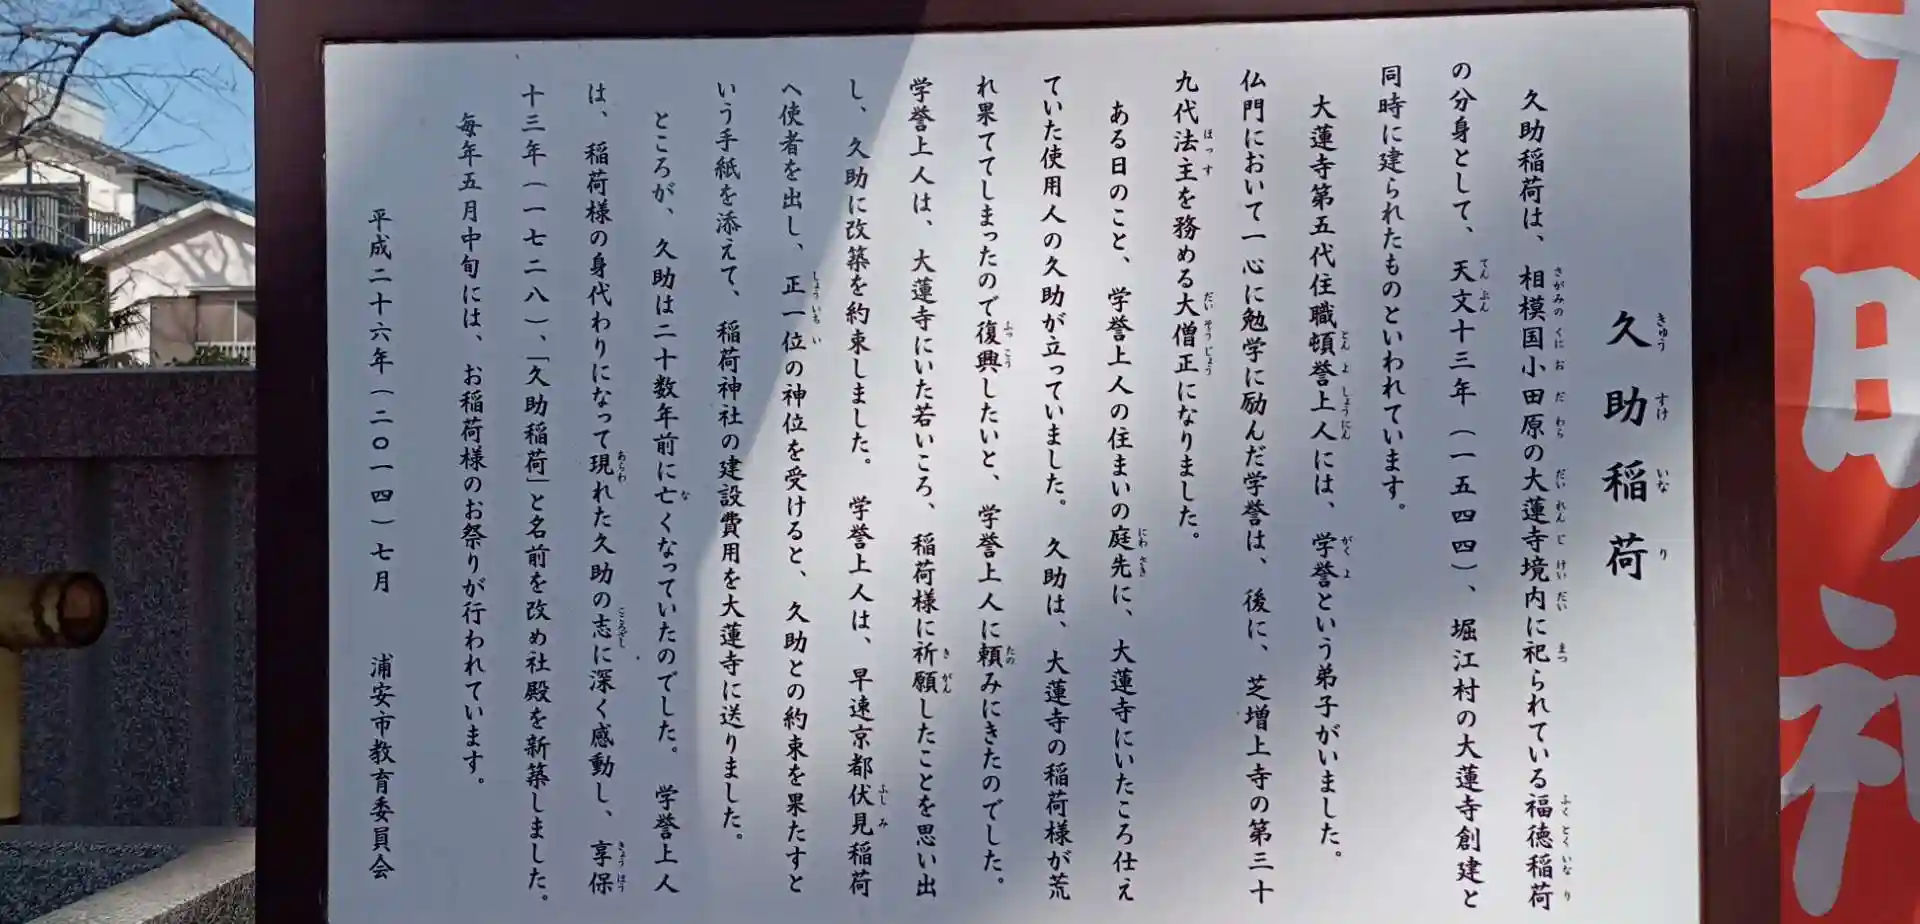 久助稲荷
久助稲荷は、相模国小田原の大蓮寺境内に祀られている福徳稲荷
の分身として、天文十三年（一五四四）、堀江村の大蓮寺創建と
同時に建られたものといわれています。
大蓮寺第五代住職頓誉上人には、学誉という弟子がいました。
仏門において一心に勉学に励んだ学誉は、後に、芝増上寺の第三十
九代法主を務める大僧正になりました。
ある日のこと、学誉上人の住まいの庭先に、大蓮寺にいたころ仕え
ていた使用人の久助が立っていました。久助は、大蓮寺の稲荷様が荒
れ果ててしまったので復興したいと、学誉上人に頼みにきたのでした。
学誉上人は、大蓮寺にいた若いころ、稲荷様に祈願したことを思い出
し、久助に改築を約束しました。学誉上人は、早速京都伏見稲荷
へ使者を出し、正一位の神位を受けると、久助との約束を果たすと
いう手紙を添えて、稲荷神社の建設費用を大蓮寺に送りました。
ところが、久助は二十数年前に亡くなっていたのでした。学誉上人
は、稲荷様の身代わりになって現れた久助の志に深く感動し、享保
十三年（一七二八）、「久助稲荷」と名前を改め社殿を新築しました。
毎年五月中旬には、お稲荷様のお祭りが行われています。
平成二十六年（二〇一四）七月　浦安市教育委員会